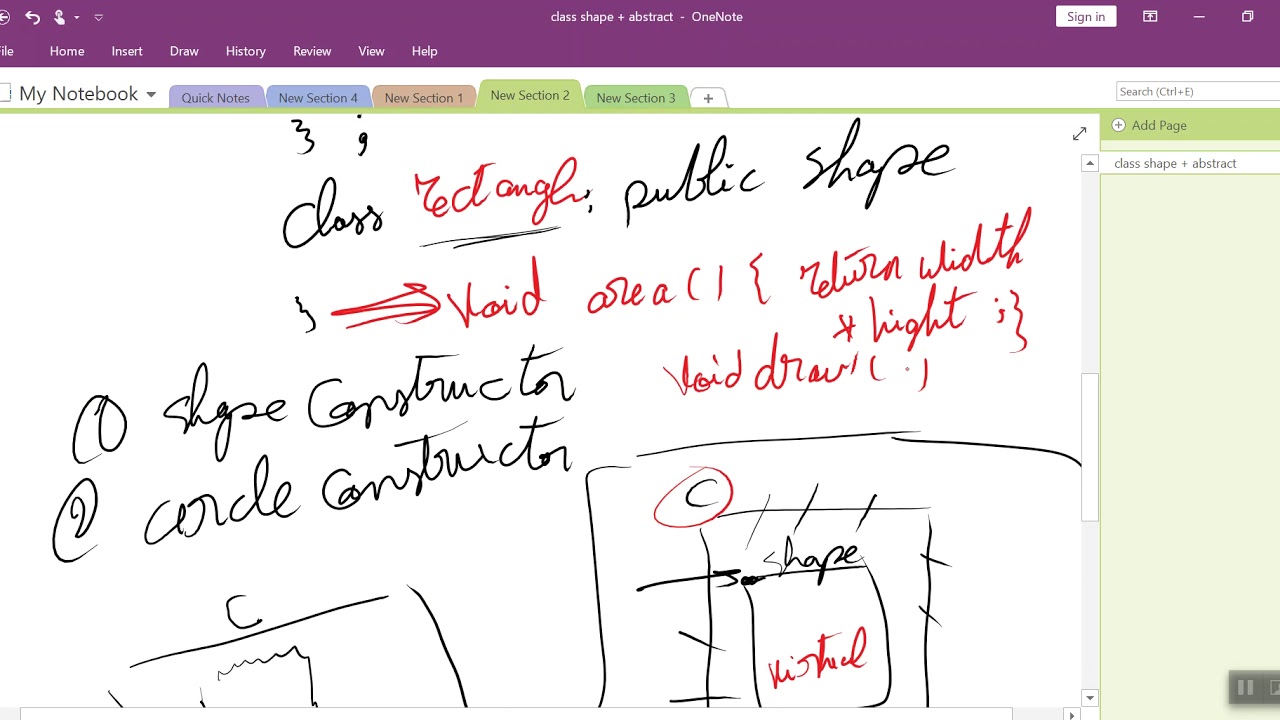 class shape + abstract - OneNote
Sign in
File Home Insert Draw History Review View Help
My Notebook Quick Notes New Section 4 New Section 1 New Section 2 New Section 3 +
Search (Ctrl+E)
Add Page
class shape + abstract
} ;
class rectangle: public shape
} void area() { return width
* hight ;}
void draw()
(1) shape Constructor
(2) circle Constructor
C
shape
virtual
C